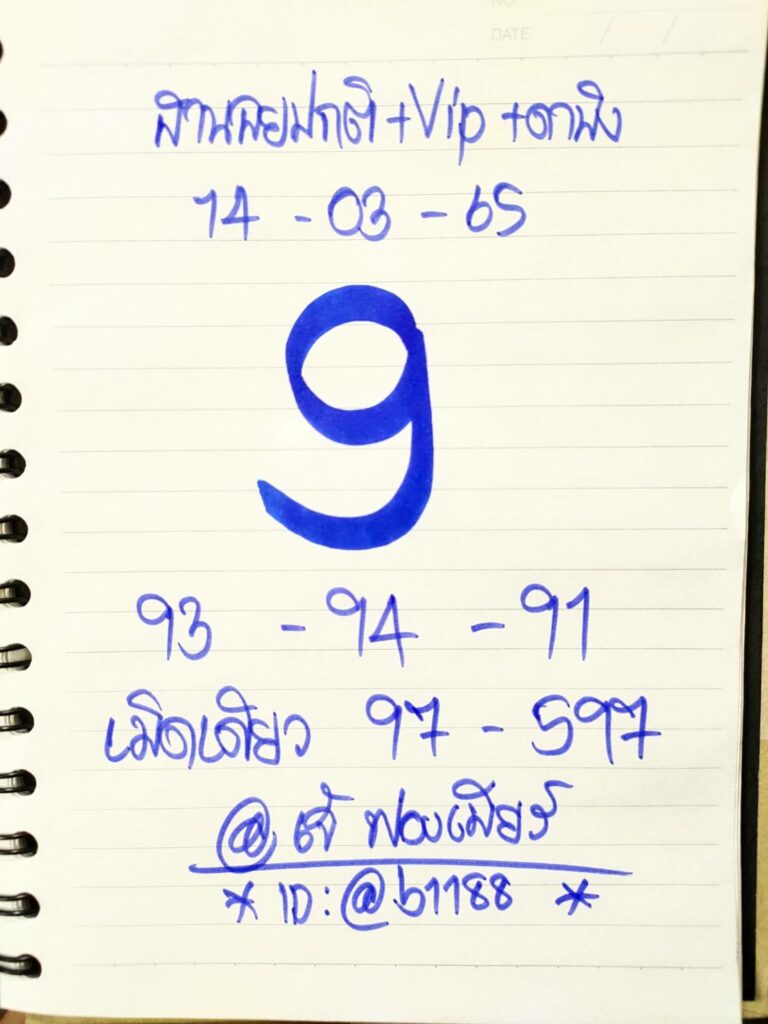 NO.
DATE / /
ฮานอยปกติ+Vip+ดานัง
14 - 03 - 65
9
93 - 94 - 91
เม็ดเดียว 97 - 597
@ เจ๊ ฟองเบียร์
* ID : @b1188 *